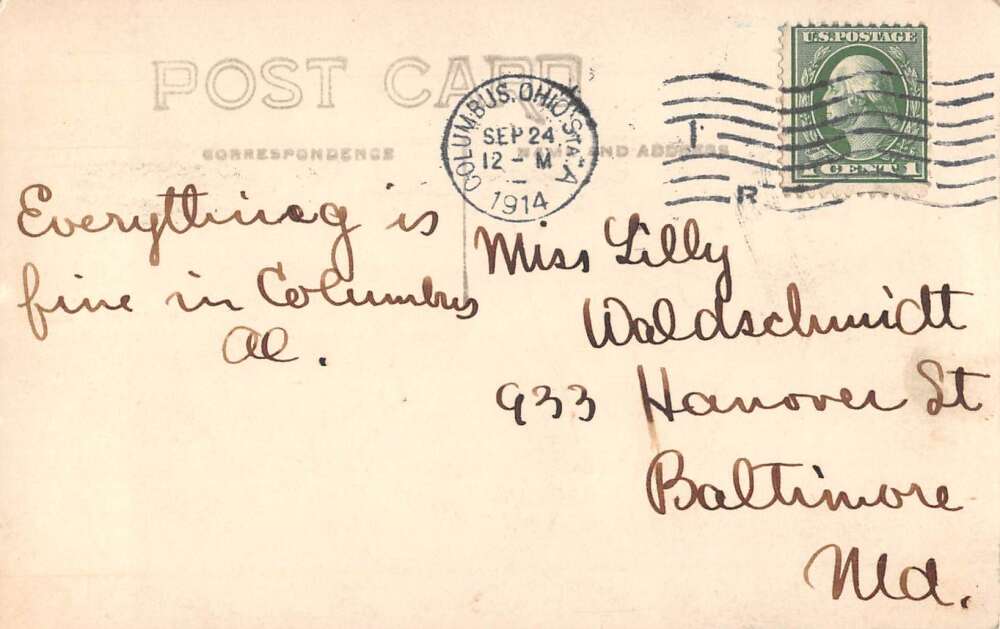 POST CARD
CORRESPONDENCE
NAME AND ADDRESS
COLUMBUS, OHIO STA. A
SEP 24
12 - M
1914
R
U.S. POSTAGE
1 CENT 1
Everything is
fine in Columbus
Al.
Miss Lilly
Waldschmidt
933 Hanover St
Baltimore
Md.